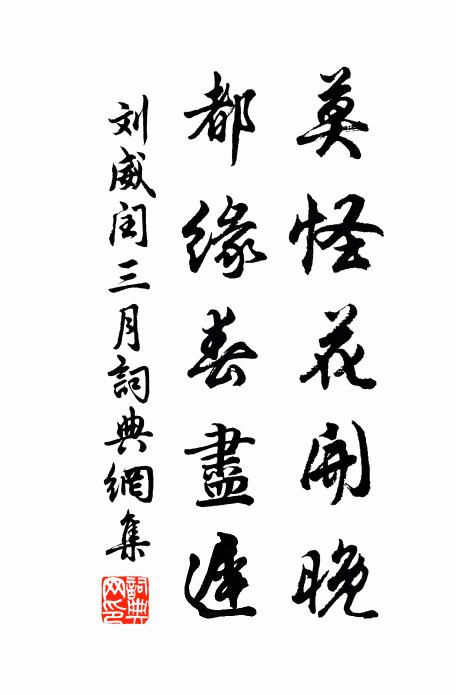 莫怪花開晚
都緣春盡遲
刘威閏三月詞典網集
詞典网印